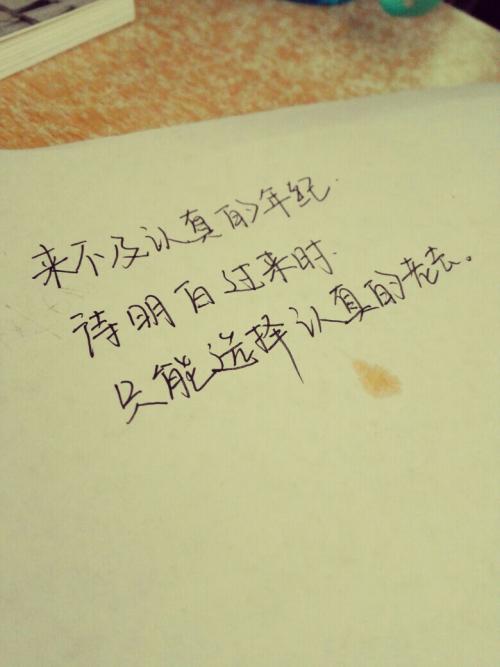 来不及认真的年纪.
待明白过来时.
只能选择认真的老去。